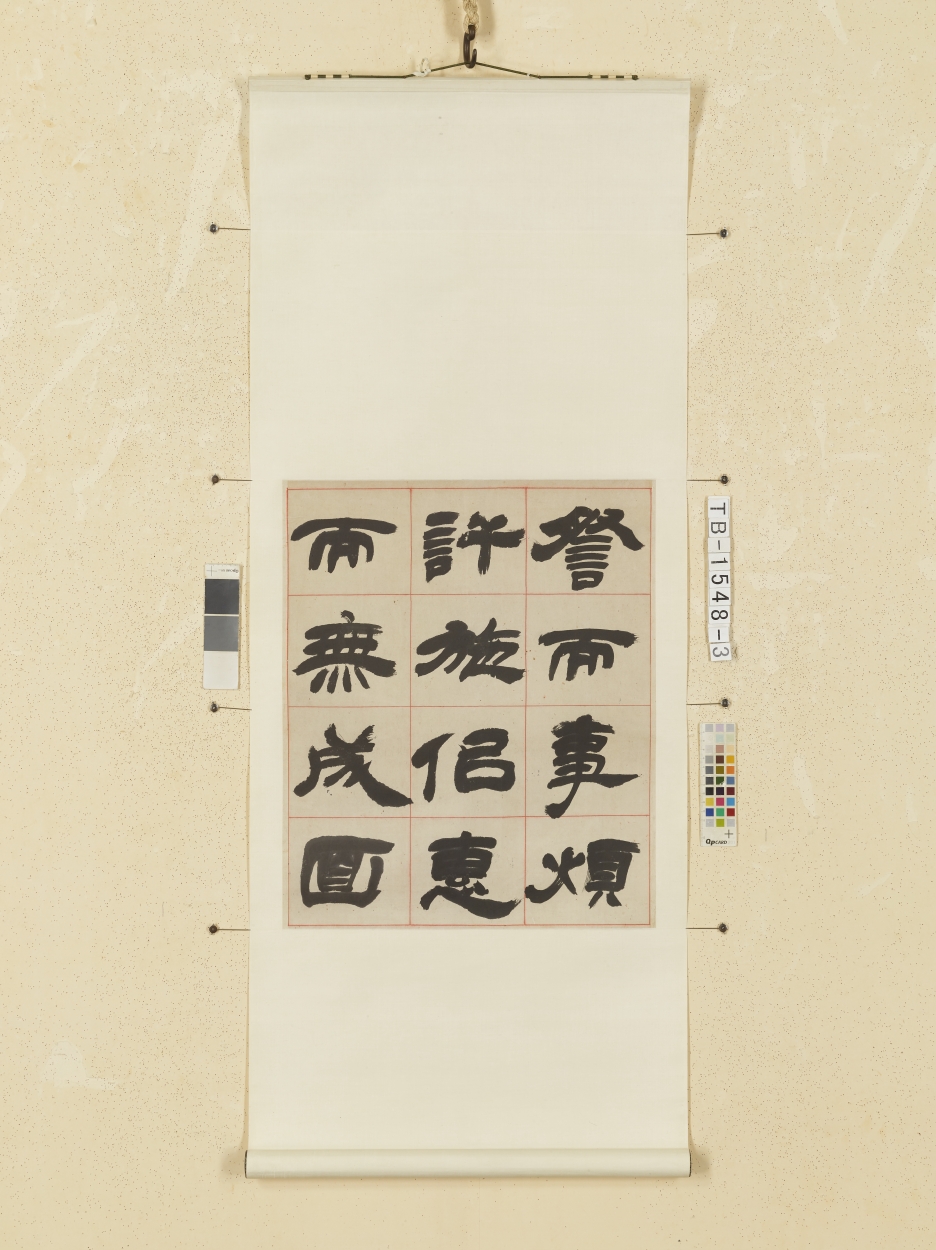 詧而事煩
許施佀惠
而無成面
TB-1548-3
QPcard